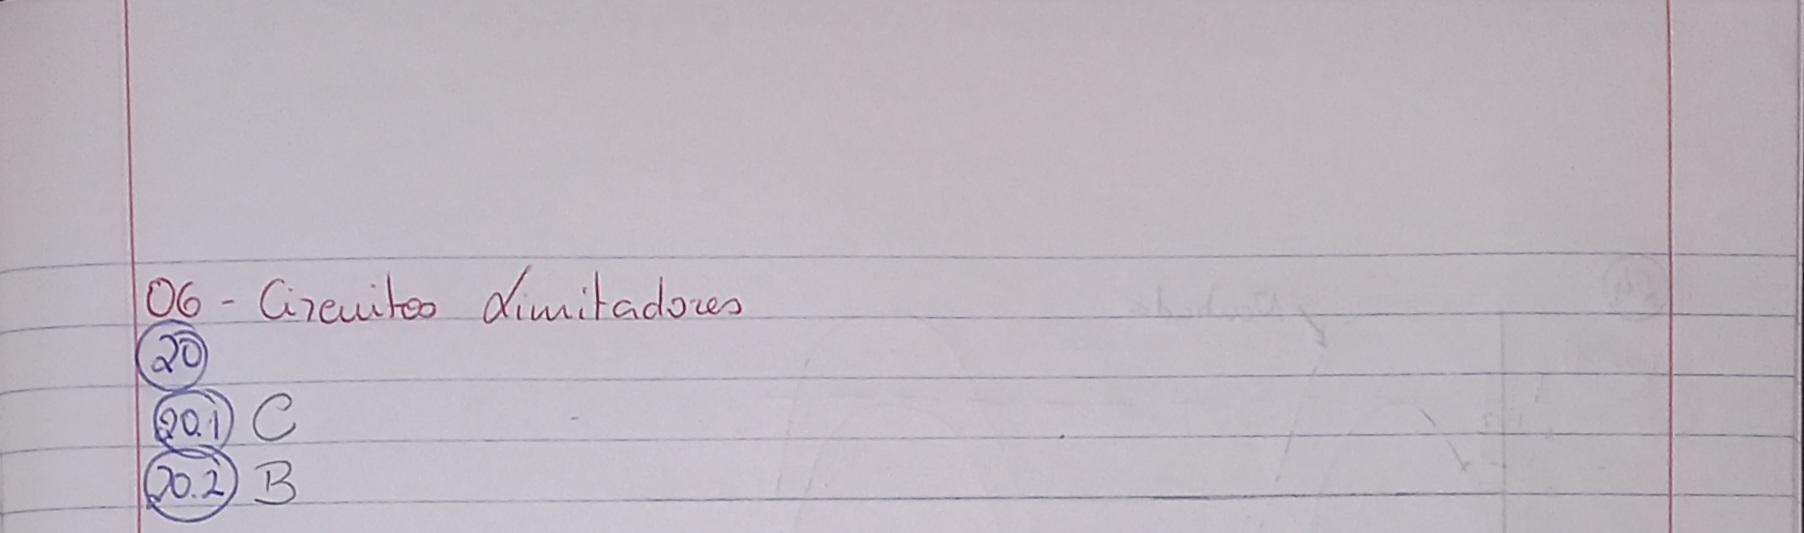 06 - Circuitos Limitadores
20
20.1 C
20.2 B